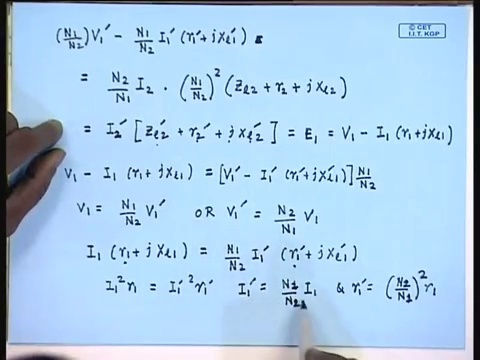 © CET
I.I.T. KGP
(N₁/N₂)V₁′ − N₁/N₂ I₁′ (r₁′+jxₗ₁′) =
= N₂/N₁ I₂ · (N₁/N₂)² (Zₗ₂ + r₂ + jxₗ₂)
= I₂′ [Zₗ₂′ + r₂′ + jxₗ₂′] = E₁ = V₁ − I₁ (r₁+jxₗ₁)
V₁ − I₁ (r₁ + jxₗ₁) = [V₁′ − I₁′ (r₁′+jxₗ₁′)] N₁/N₂
V₁ = N₁/N₂ V₁′ OR V₁′ = N₂/N₁ V₁
I₁ (r₁ + jxₗ₁) = N₁/N₂ I₁′ (r₁′ + jxₗ₁′)
I₁² r₁ = I₁′² r₁′ I₁′ = N₁/N₂ I₁ & r₁′ = (N₂/N₁)² r₁